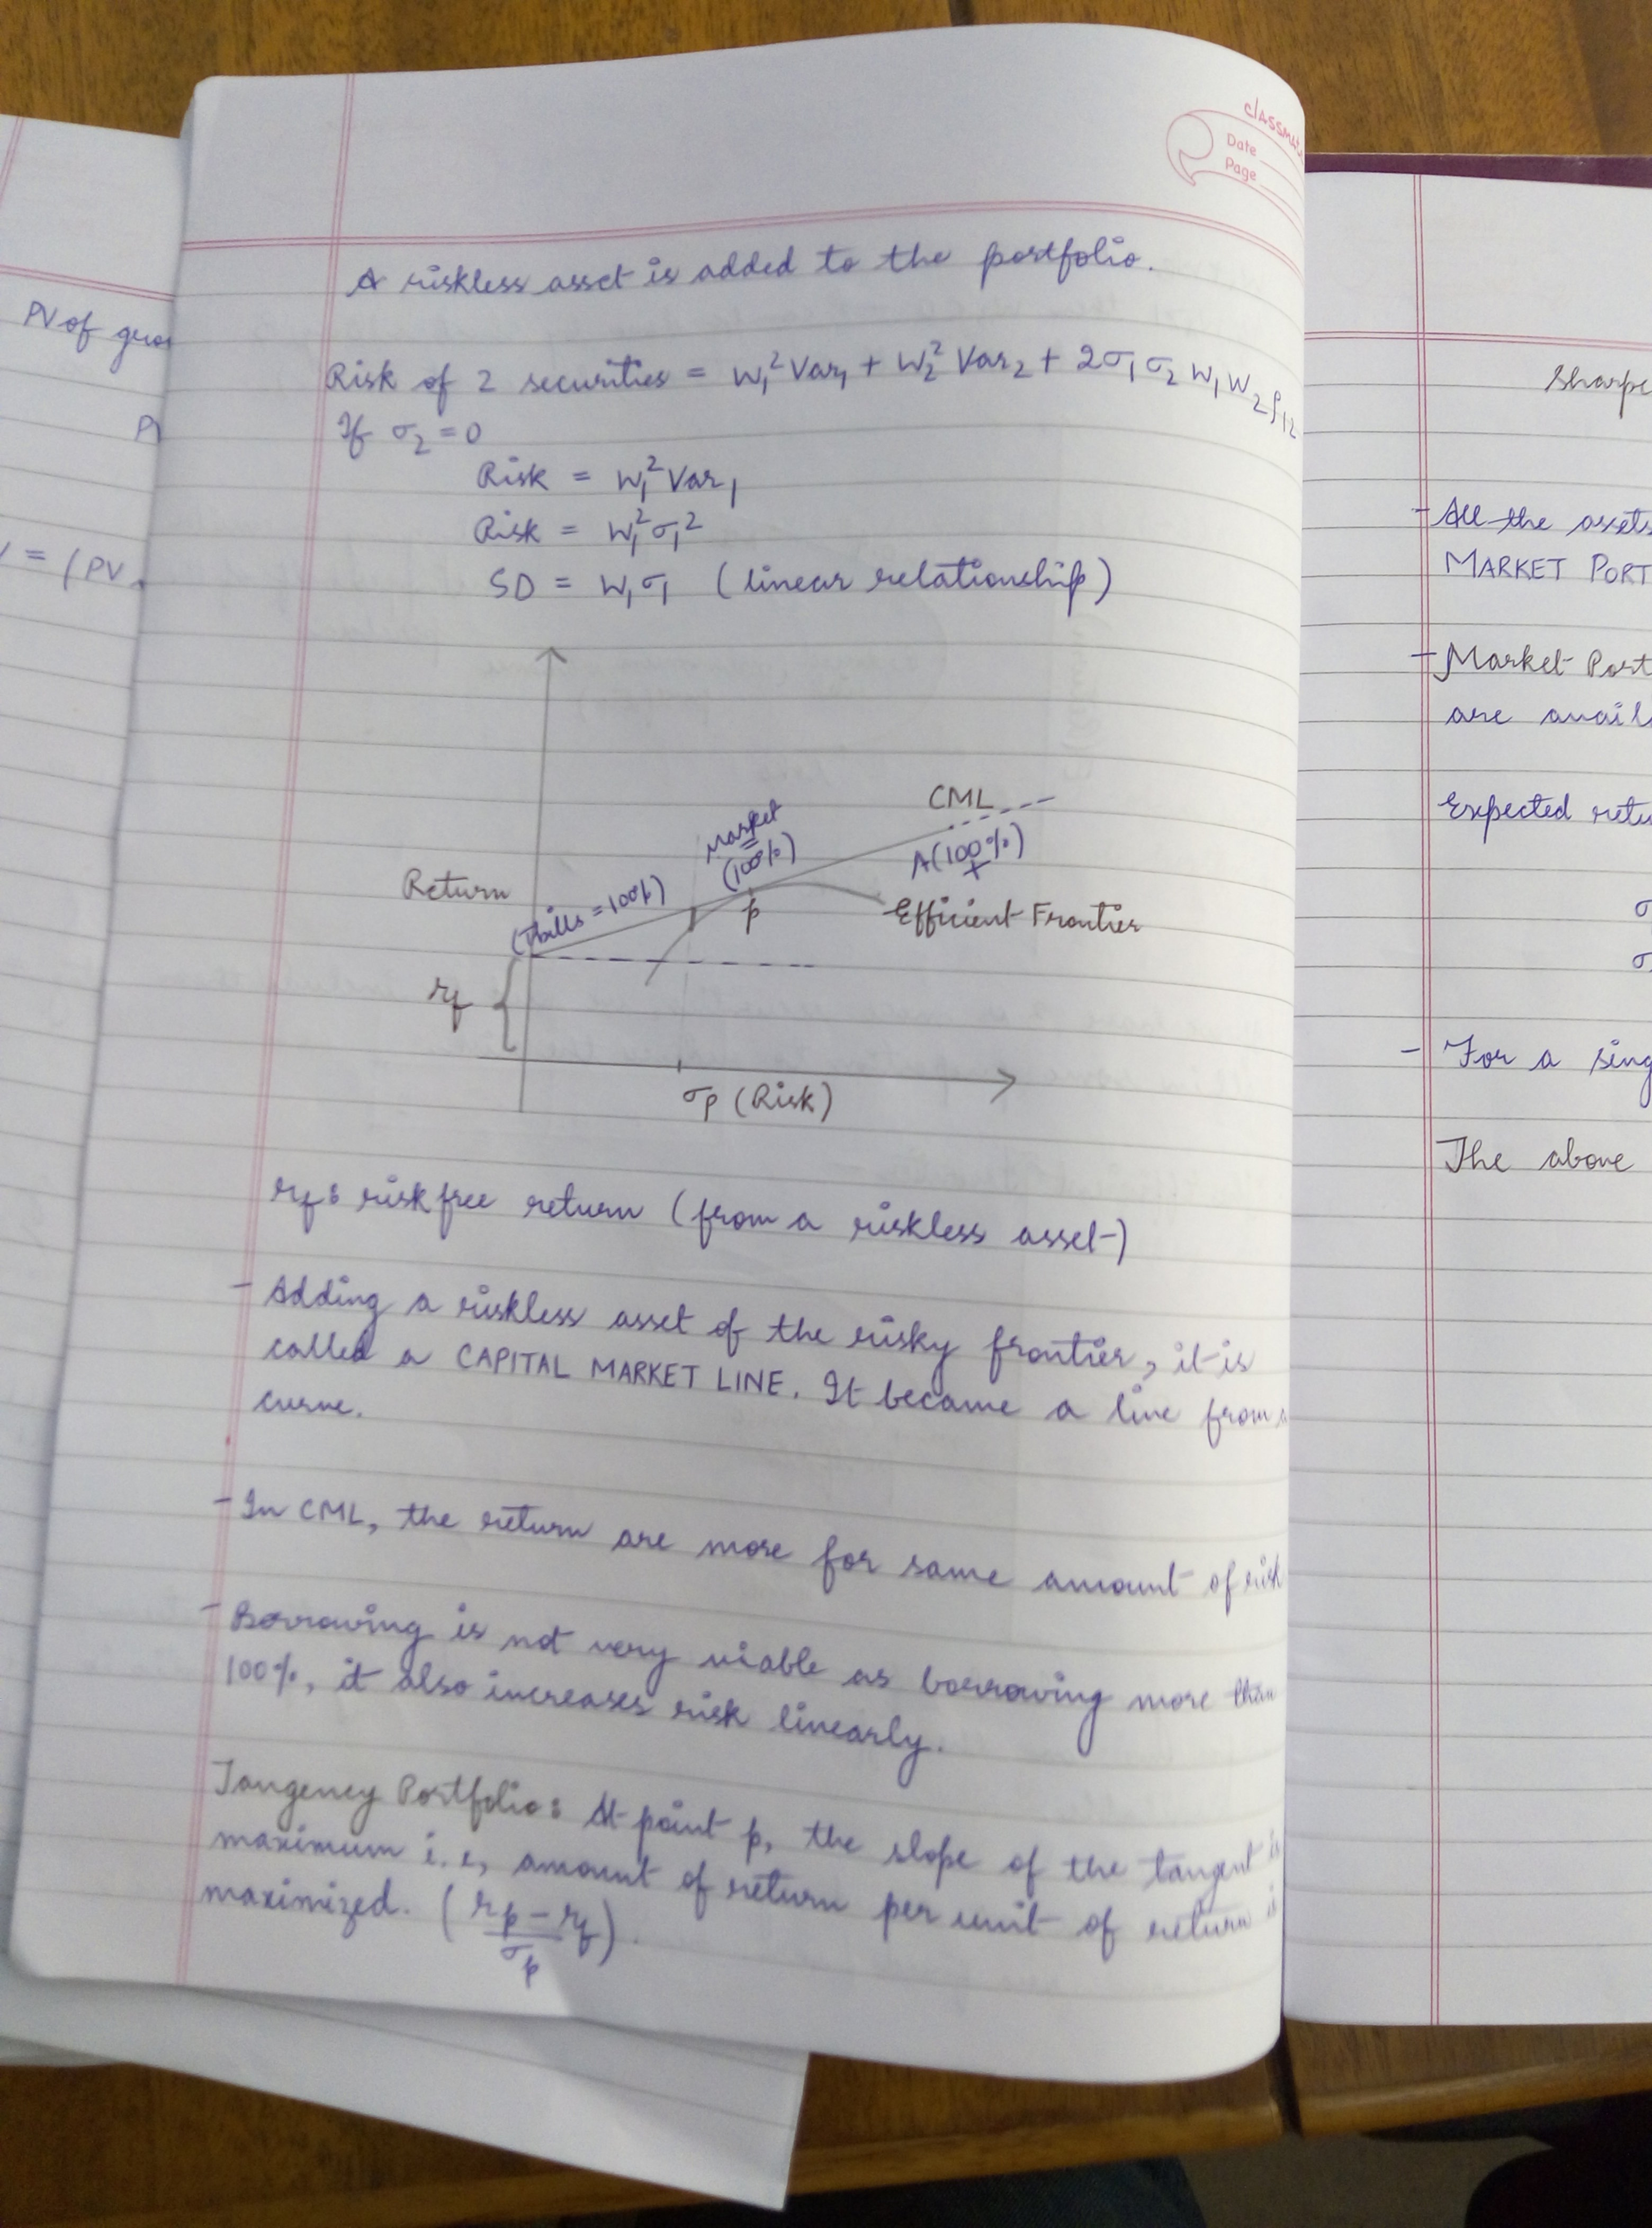 classmate
Date
Page
A riskless asset is added to the portfolio.
Risk of 2 securities = W₁² Var₁ + W₂² Var₂ + 2σ₁ σ₂ W₁ W₂ ρ₁₂
If σ₂ = 0
Risk = W₁² Var₁
Risk = W₁² σ₁²
SD = W₁ σ₁ (linear relationship)
CML
Market
(100%)
A(100%)
+
Return
(Tbills = 100%)
p
Efficient Frontier
rf {
σp (Risk)
rf : risk free return (from a riskless asset)
- Adding a riskless asset of the risky frontier, it is
called a CAPITAL MARKET LINE. It became a line from a
curve.
- In CML, the return are more for same amount of risk
- Borrowing is not very viable as borrowing more than
100%, it also increases risk linearly.
Tangency Portfolio: At point p, the slope of the tangent is
maximum i.e, amount of return per unit of return is
maximized. (rp - rf / σp).
PV of
= (PV
Sharpe
- All the assets
MARKET PORT
- Market Port
are avail
Expected retu
σ
σ
- For a sing
The above